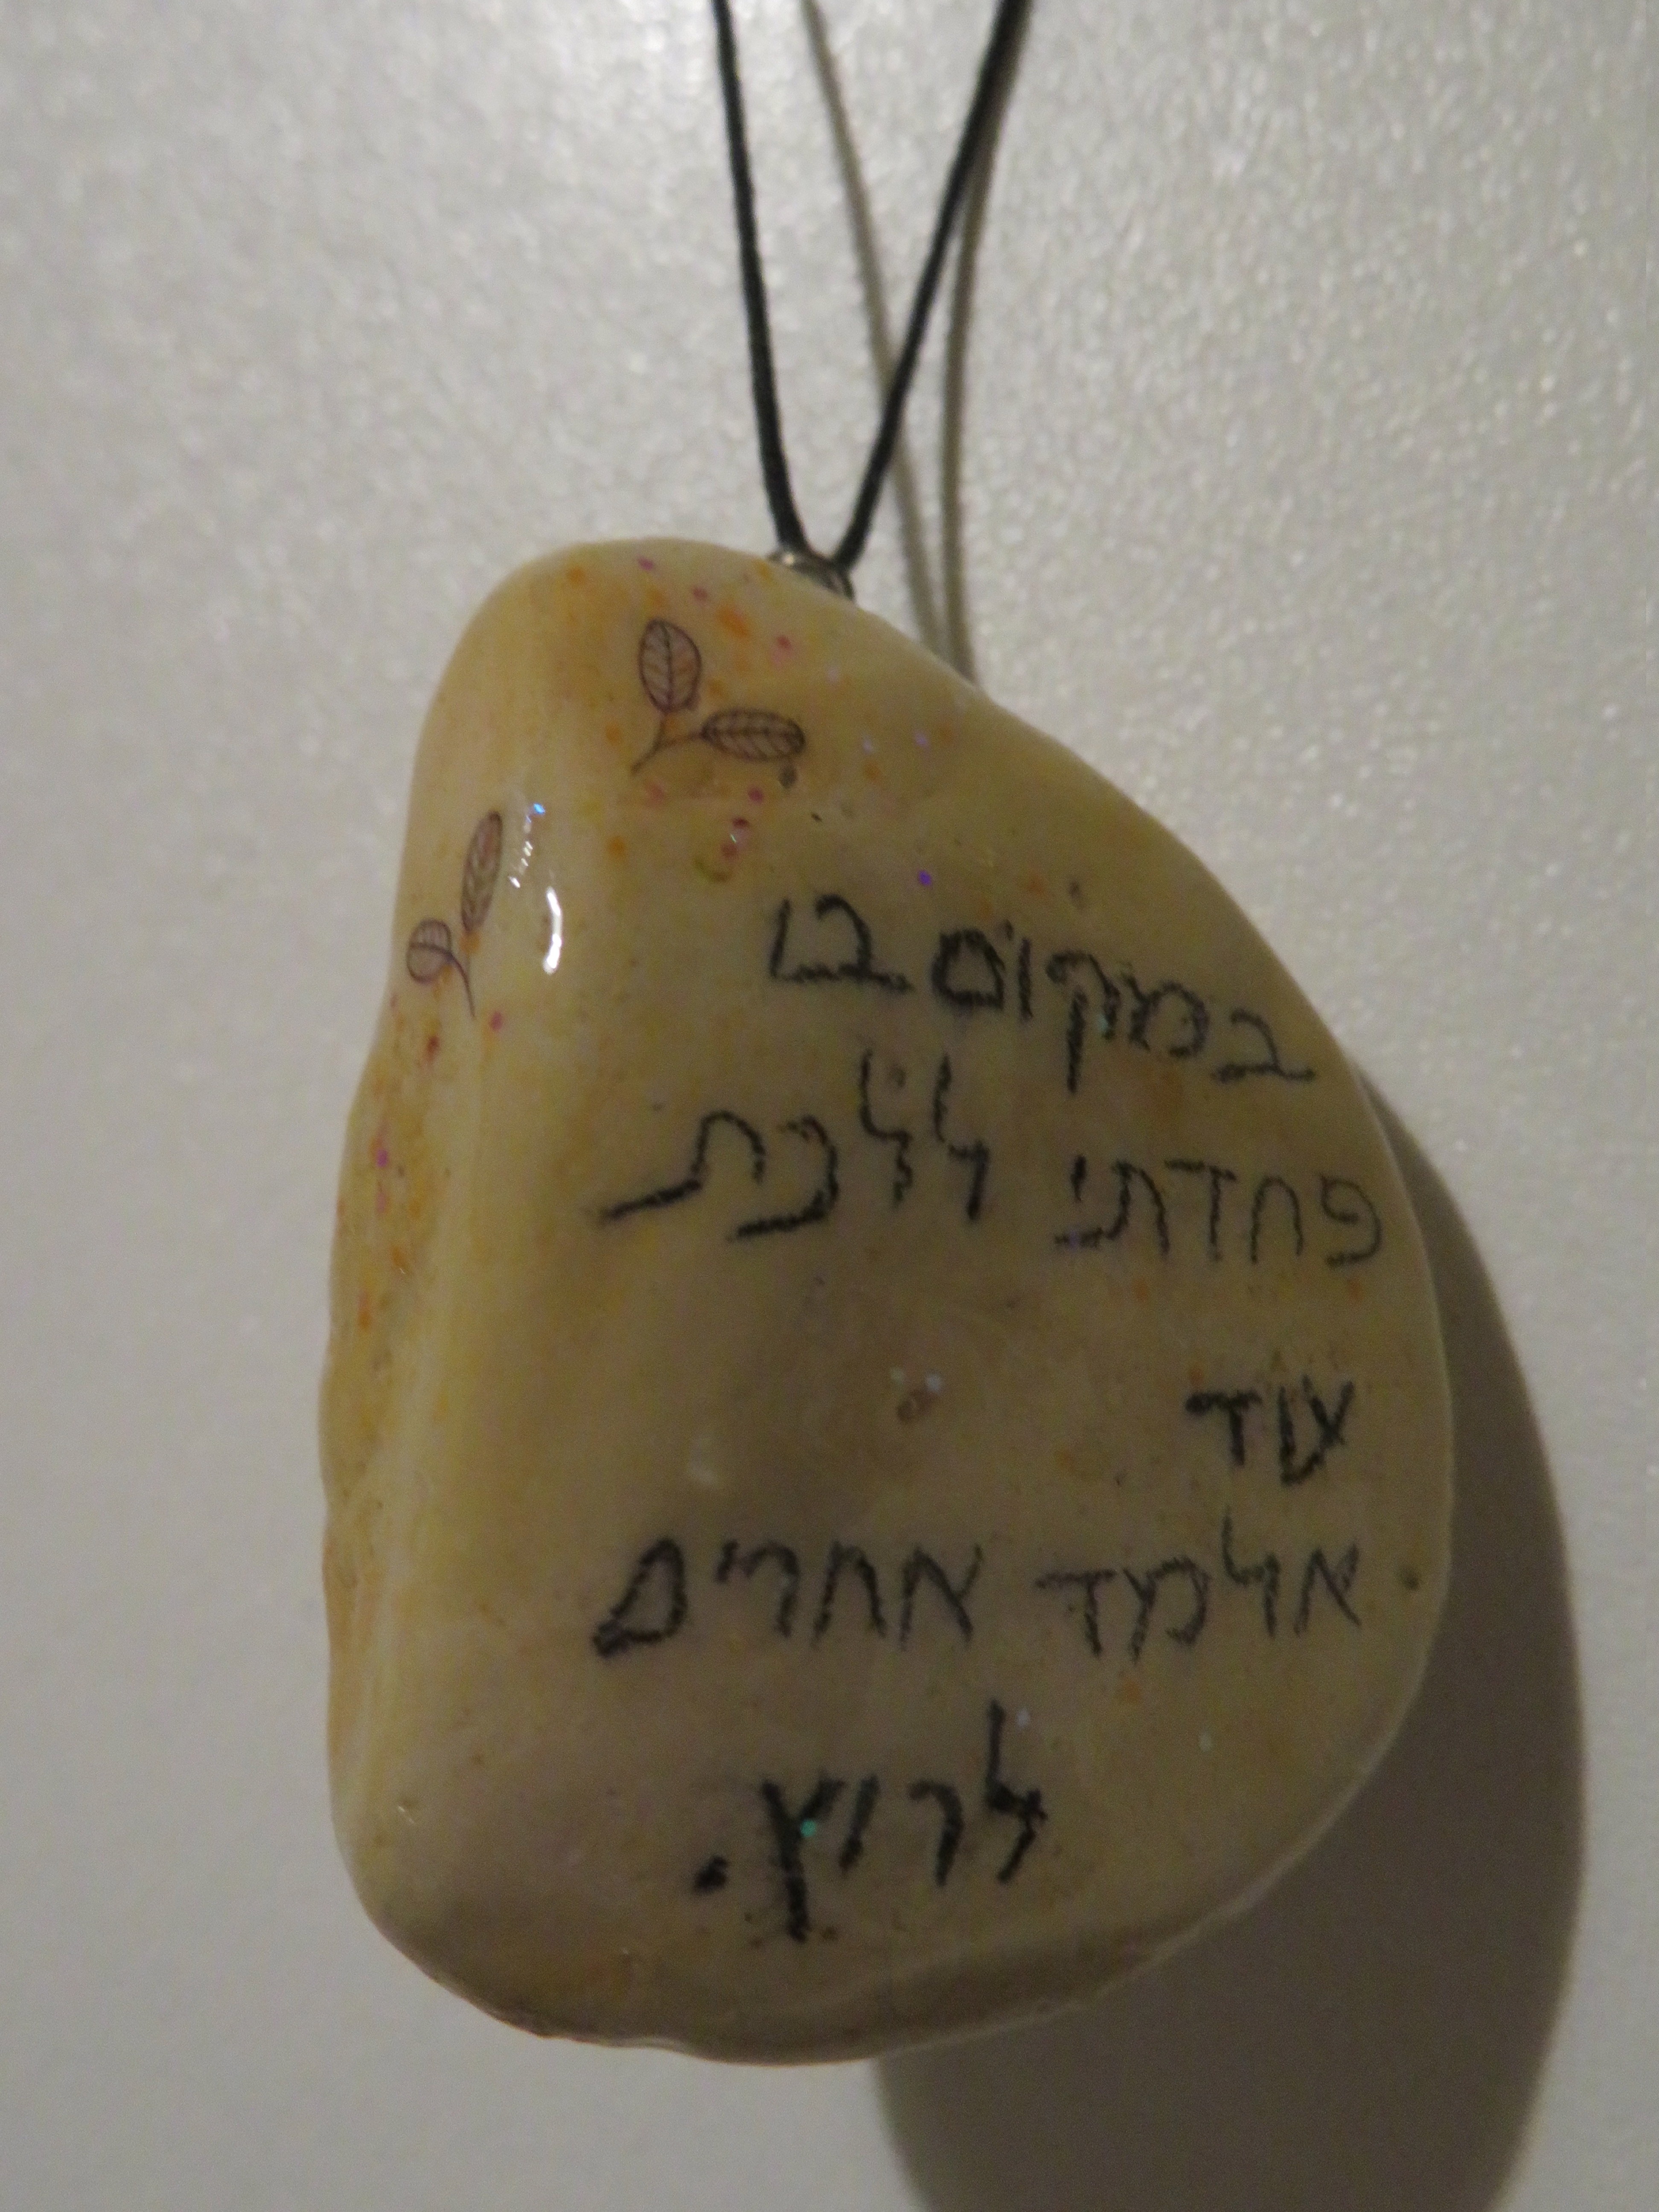 במקום בו
פחדתי ללכת
עוד
אלמד אחרים
לרוץ.